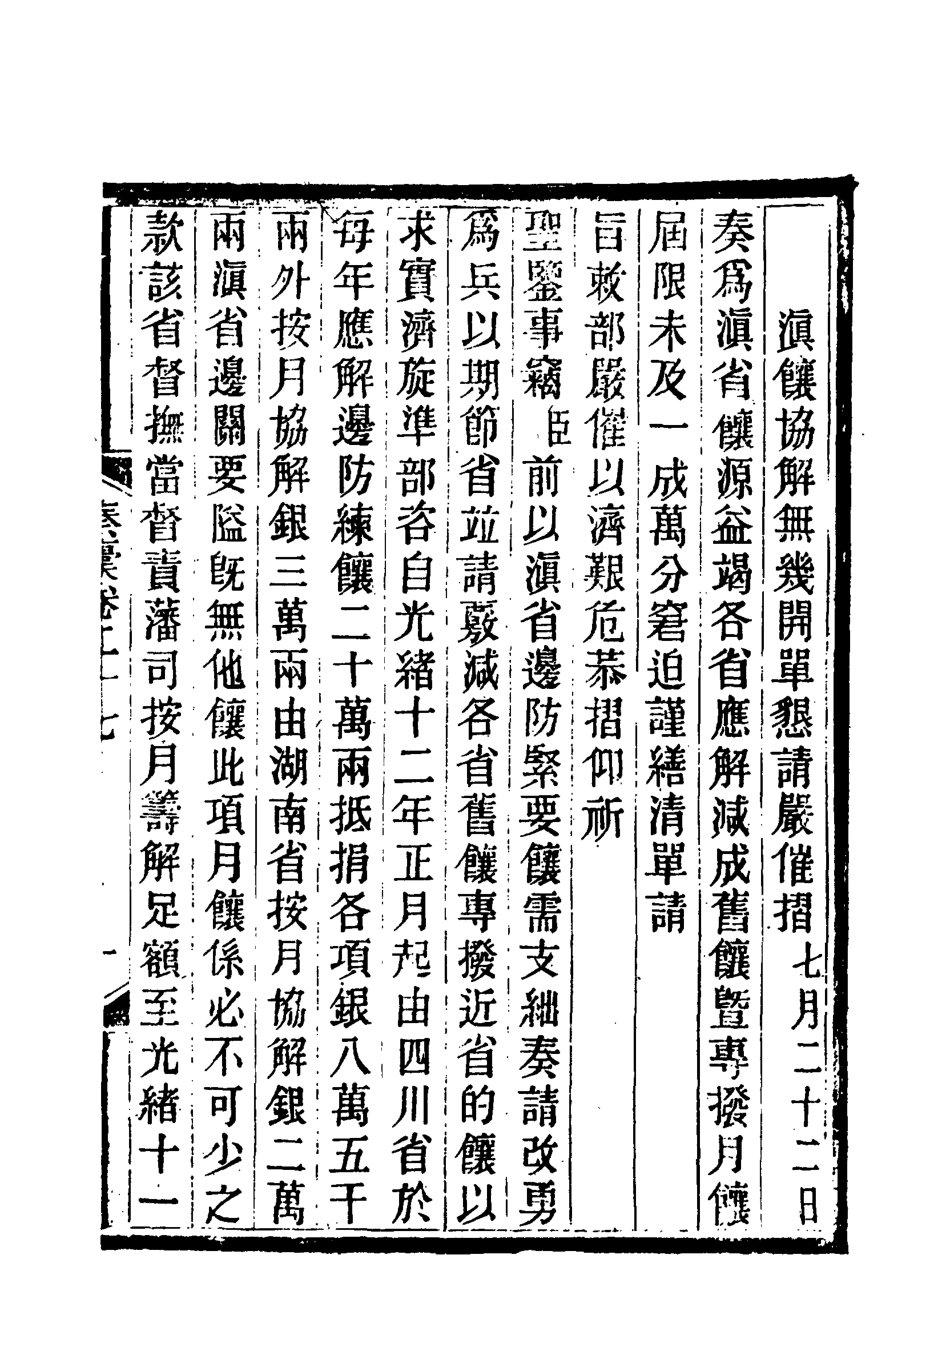 滇饟協解無幾開單懇請嚴催摺七月二十二日
奏爲滇省饟源益竭各省應解減成舊饟曁專撥月饟
屆限未及一成萬分窘迫謹繕清單請
旨敕部嚴催以濟艱危恭摺仰祈
聖鑒事竊臣前以滇省邊防緊要饟需支絀奏請改勇
爲兵以期節省竝請覈減各省舊饟專撥近省的饟以
求實濟旋準部咨自光緒十二年正月起由四川省於
每年應解邊防練饟二十萬兩抵捐各項銀八萬五千
兩外按月協解銀三萬兩由湖南省按月協解銀二萬
兩滇省邊關要隘旣無他饟此項月饟係必不可少之
款該省督撫當督責藩司按月籌解足額至光緒十一